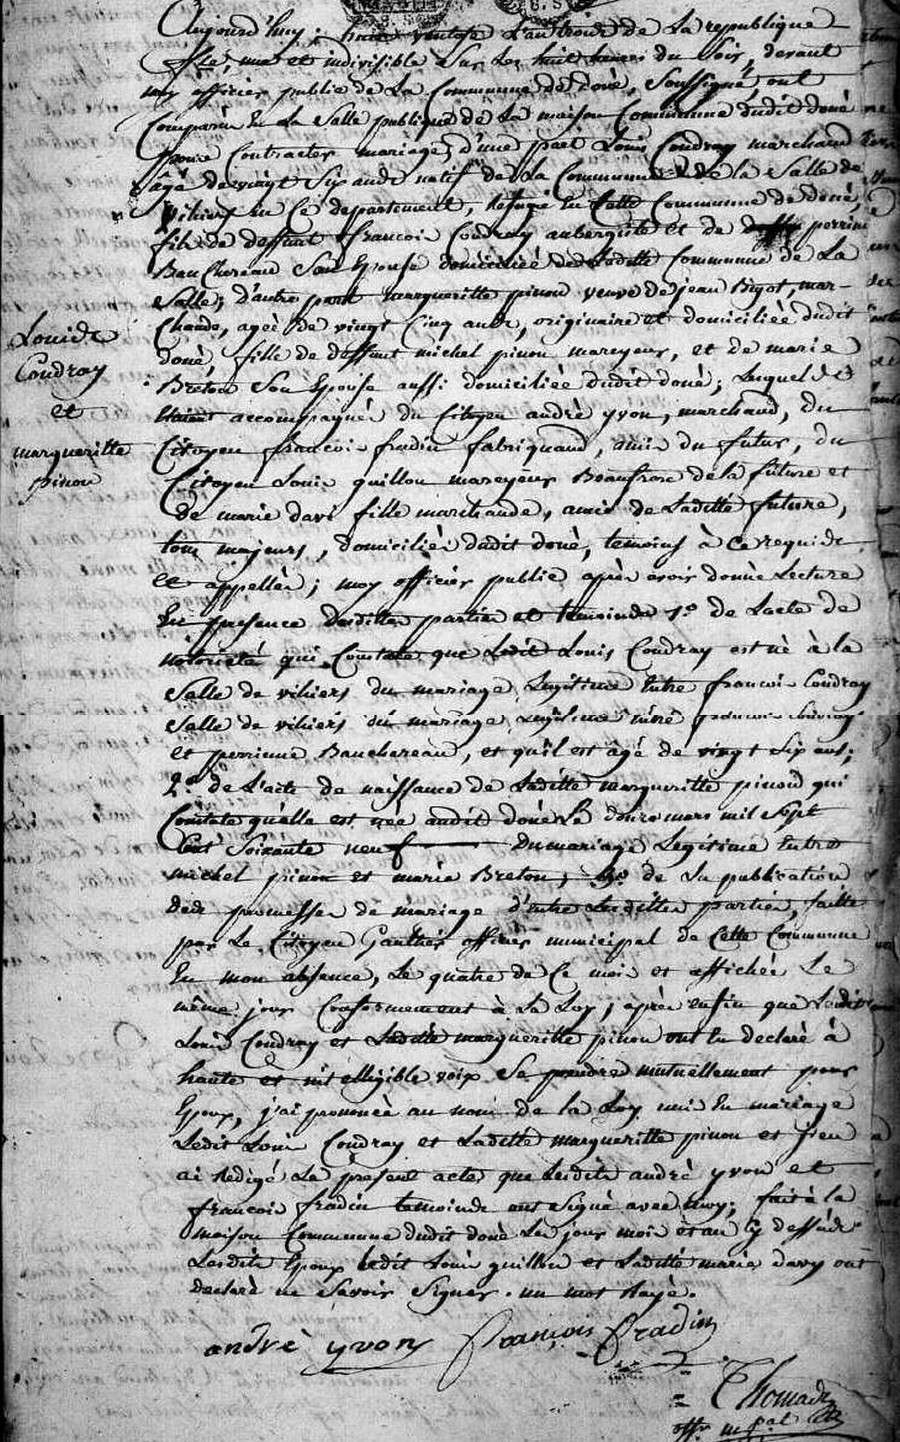 Aujourd'huy, huit ventose L'an trois de La republique
une et indivisible Sur Les huit heures du Soir, devant
moy officier publie de La Commune de doué, Soussigné, ont
Comparu En La Salle publique de La maison Commune dudit doué
pour Contracter mariage, d'une part Louis Coudray marchand
âgé de vingt Six ans natif de La Commune de la Salle de
vihiers en Ce departement, refugié En Cette Commune de doué,
fils de deffunt francois Coudray aubergiste et de perrine
Bauchereau Son Epouse domiciliée de Ladite Commune de La
Salle; d'autre part margueritte pinou veuve de jean Bigot, mar-
chande, agée de vingt Cinq ans, originaire et domiciliée dudit
doué, fille de deffunt michel pinou mareyeur, et de marie
Breton Son Epouse aussi domiciliée dudit doué; Lesquels
accompagnés du Citoyen andré yvon, marchand, du
Citoyen francois fradin fabriquand, amis du futur, du
Citoyen Louis guillou mareyeur Beaufrere de la future et
de marie davi fille marchande, amie de Ladite future,
tous majeurs, domiciliés dudit doué, temoins à Ce requis
et appellés; moy officier publie après avoir donné Lecture
En presence desdittes parties et temoins 1.º de Lacte de
notorieté qui Constate que Ledit Louis Coudray est né à la
Salle de vihiers du mariage Legitime Entre francois Coudray
Salle de vihiers du mariage Legitime Entre francois Coudray
et perrinne Bauchereau, et qu'il est âgé de vingt Six ans;
2.º de L'acte de naissance de Laditte margueritte pinou qui
Constate qu'elle est née audit doué Le douze mars mil Sept
Cent Soixante neuf du mariage Legitime Entre
michel pinou et marie Breton; 3.º de La publication
des promesses de mariage d'entre Lesdittes parties, faitte
par Le Citoyen Gaultier officier municipal de Cette Commune
En mon absence, Le quatre de Ce mois et affichée Le
même jour Conformement à La Loy; après enfin que Ledit
Louis Coudray et Laditte margueritte pinou ont Eu declaré à
haute et intelligible voix Se prendre mutuellement pour
Epoux, j'ai prononcé au nom de la Loy unis En mariage
Ledit Louis Coudray et Laditte margueritte pinou et j'en
ai redigé Le present acte que Lesdits andré yvon et
francois fradin temoins ont Signé avec moy; fait à la
maison Commune dudit doué Les jour mois et an Cy dessus
Lesdits Epoux Ledit Louis guillou et Laditte marie davy ont
declaré ne Savoir Signer. un mot Rayé.
Louis
Coudray
et
margueritte
pinou
andré yvon françois fradin
Thomas
offr. m.pal